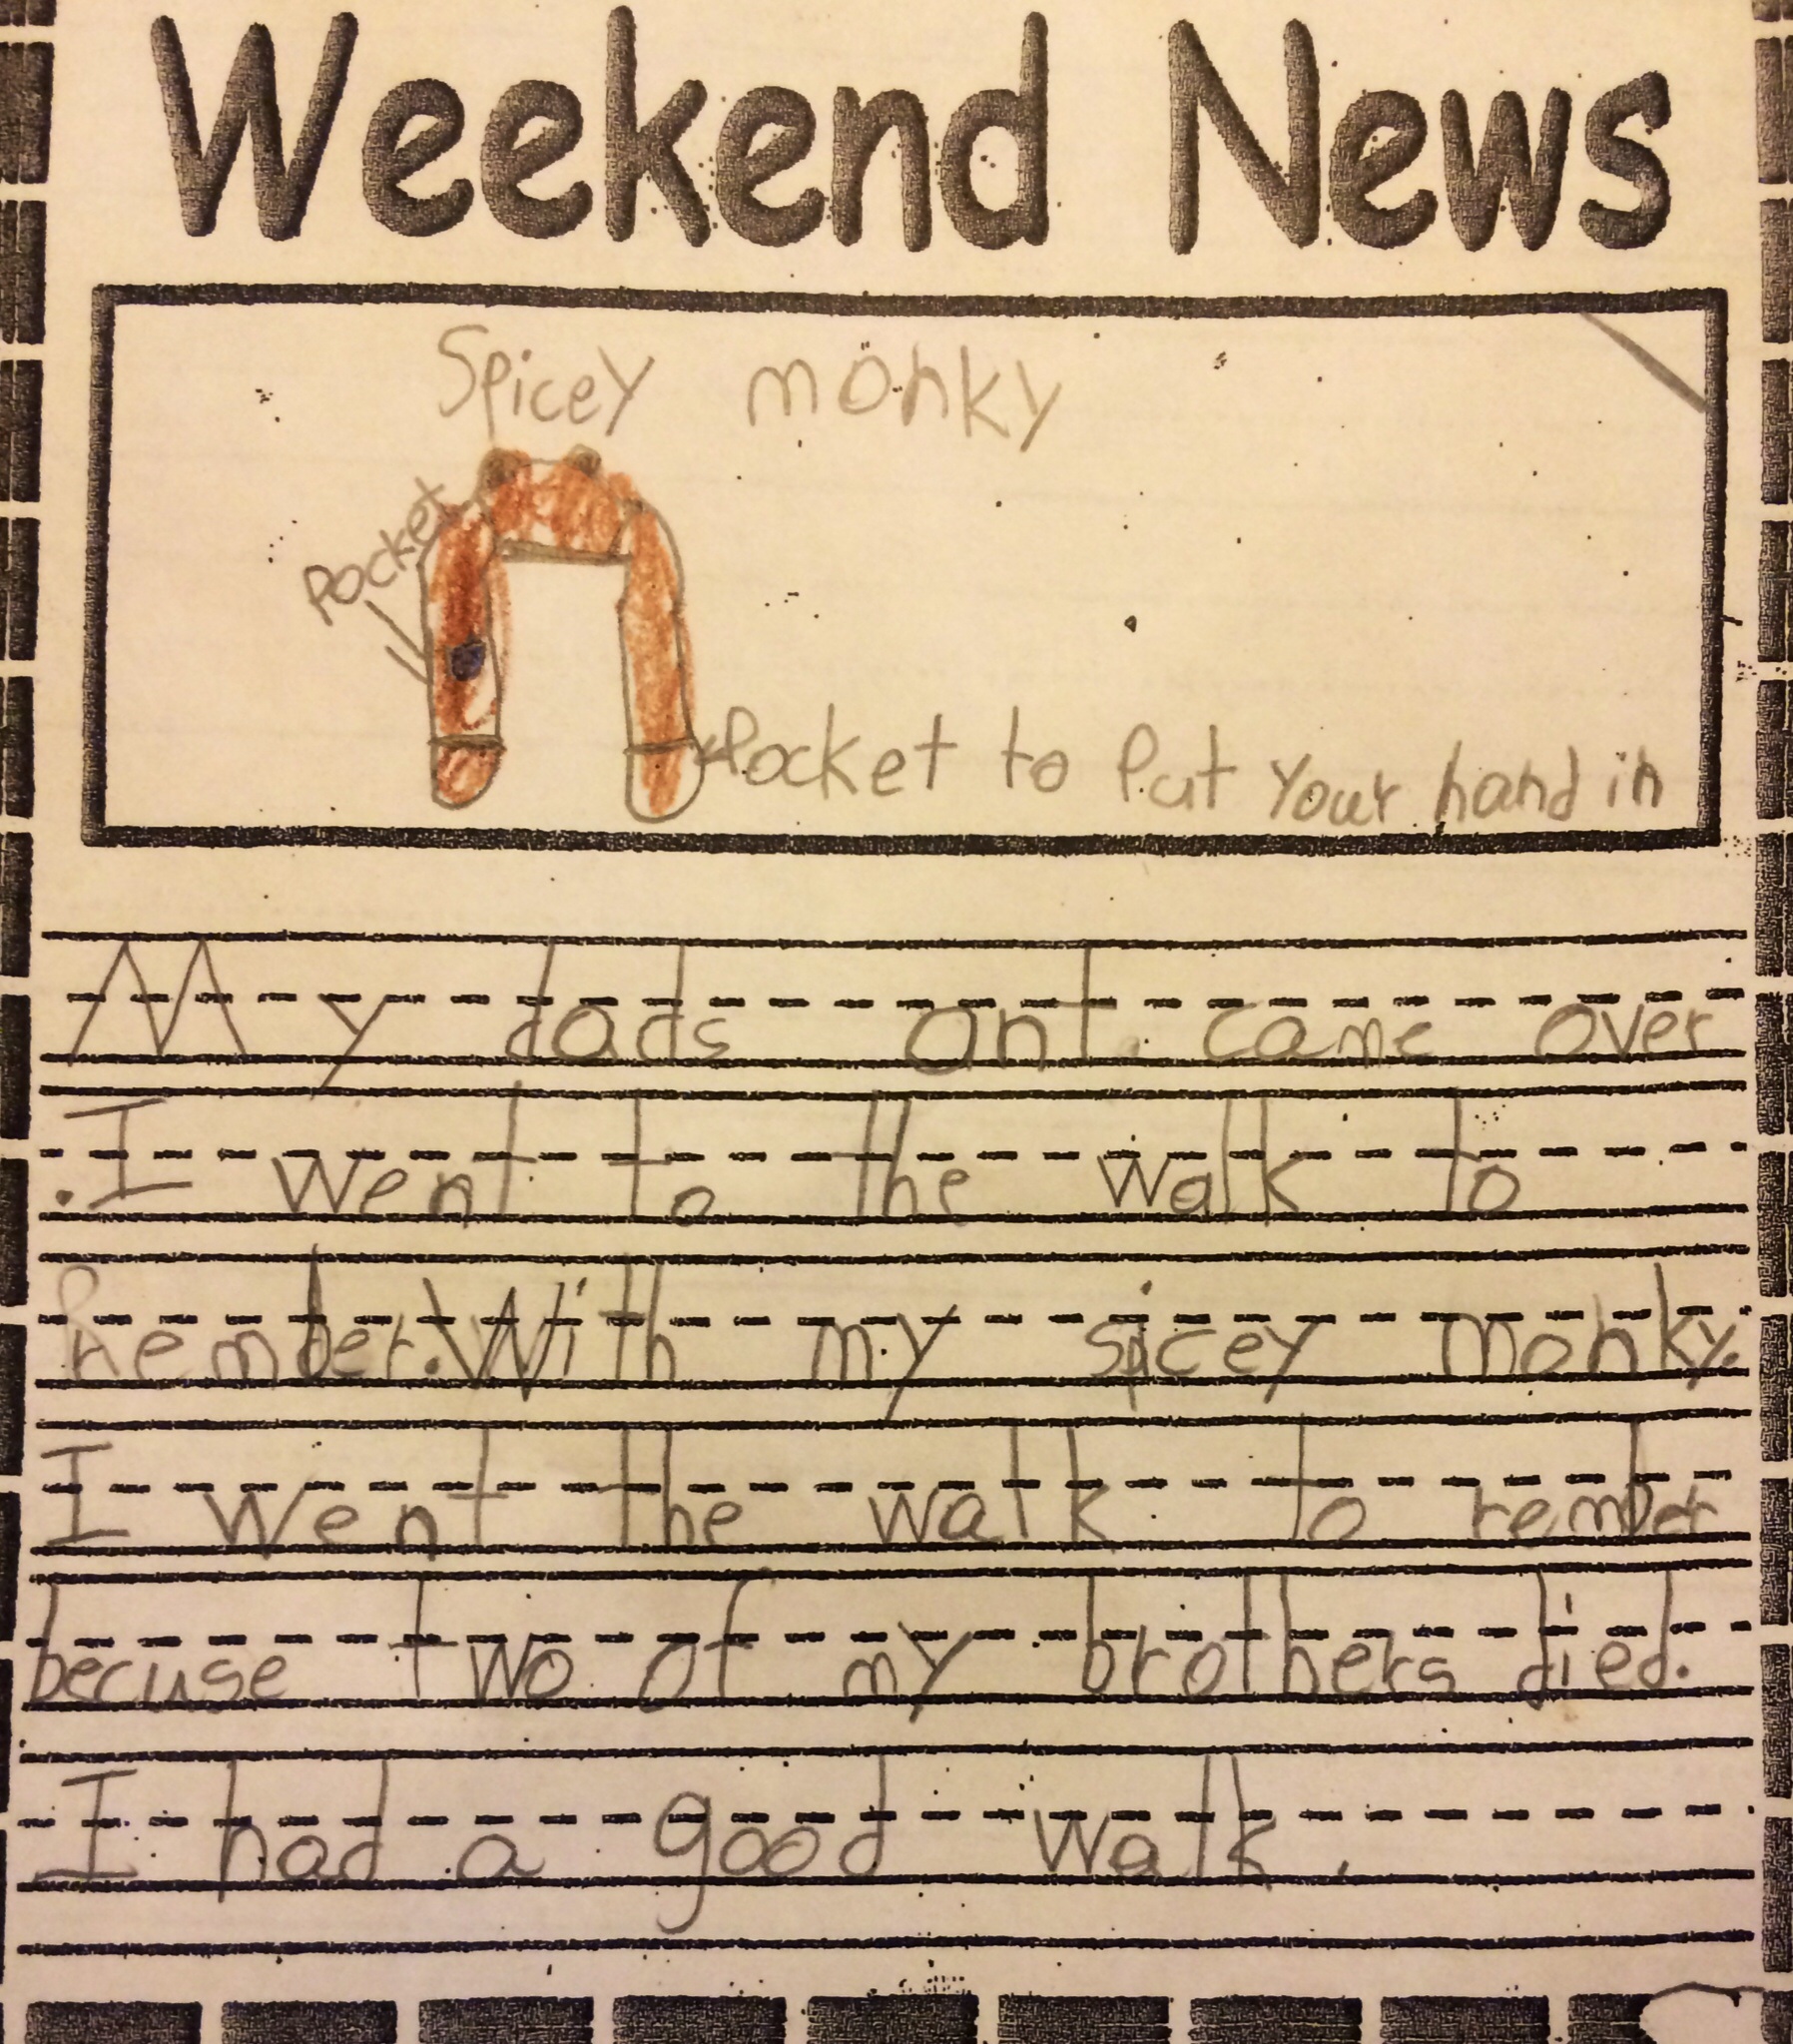 Weekend News
Spicey monky
Pocket
Pocket to Put Your hand in
My dads ant came over
.I went to the walk to
Rember. With my spicey monky.
I went the walk to rember
becuse two of my brothers died.
I had a good walk.